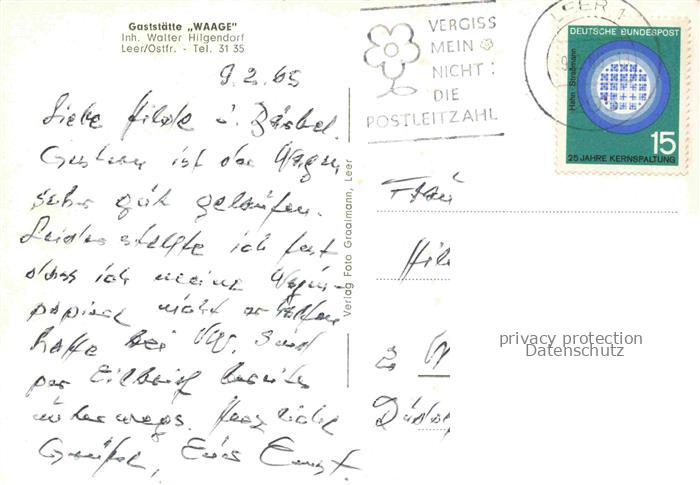 Gaststätte „WAAGE"
Inh. Walter Hilgendorf
Leer/Ostfr. - Tel. 31 35
9.2.65
Liebe Hilde u. Bärbel.
Gestern ist der Wagen
sehr gut gelaufen.
Leider stellte ich fest
dass ich meine Wagen-
papiere nicht erhalten
hatte bei VW. Sind
per Eilbrief bereits
unterwegs. Herzliche
Grüße, Euer Ernst.
Verlag Foto Graalmann, Leer
VERGISS
MEIN
NICHT:
DIE
POSTLEITZAHL
LEER 1
DEUTSCHE BUNDESPOST
Hahn - Straßmann
15
25 JAHRE KERNSPALTUNG
Frau
Hil
privacy protection
Datenschutz